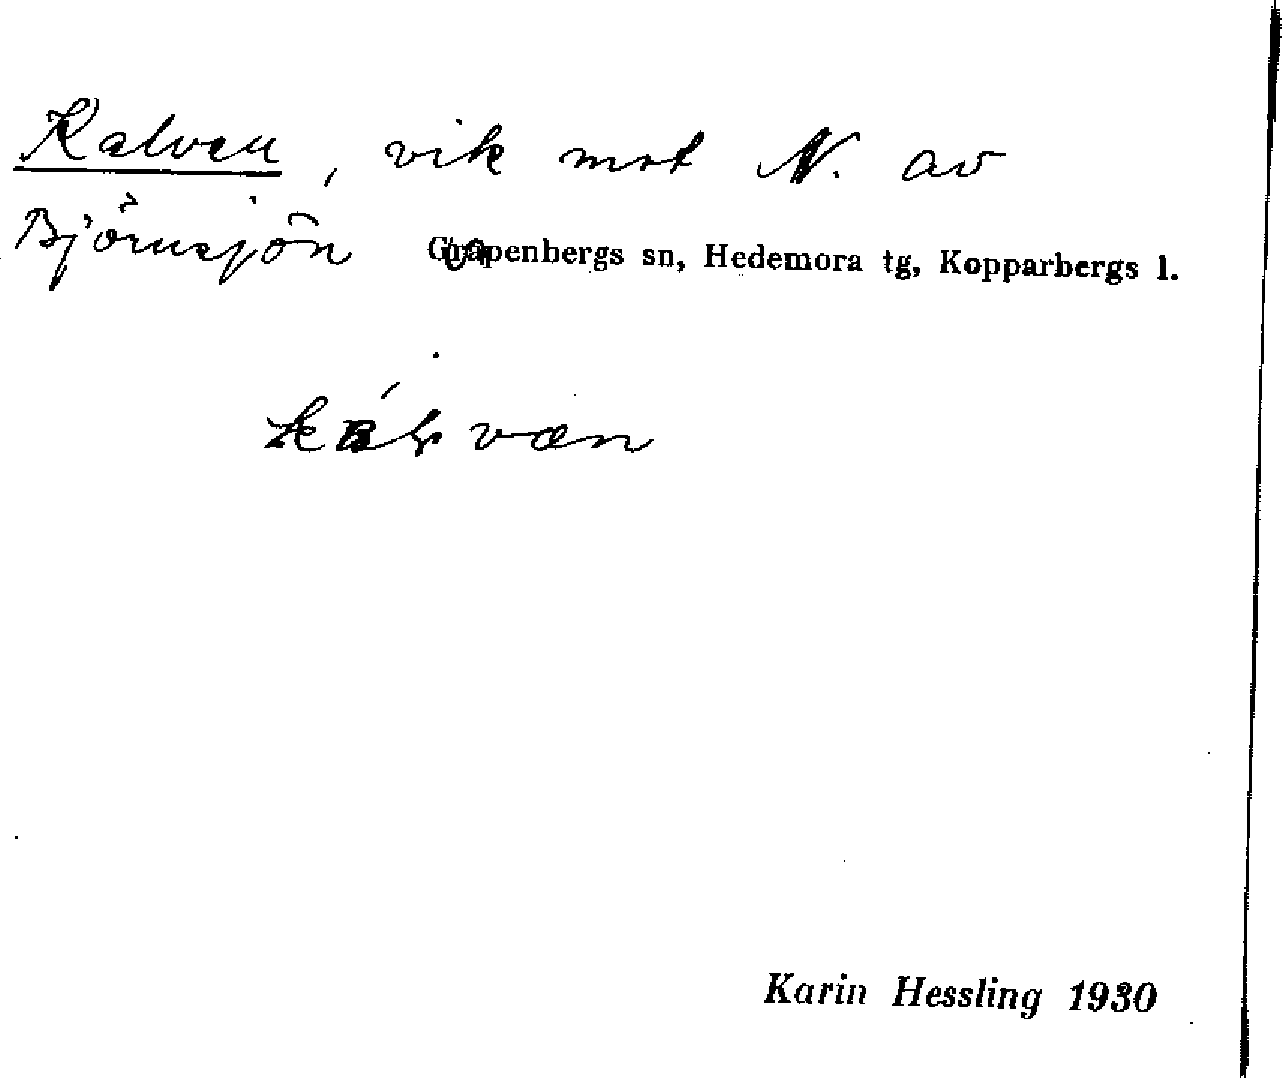 Kalven, vik mot N. av
Björnsjön Garpenbergs sn, Hedemora tg, Kopparbergs l.
Karin Hessling 1930